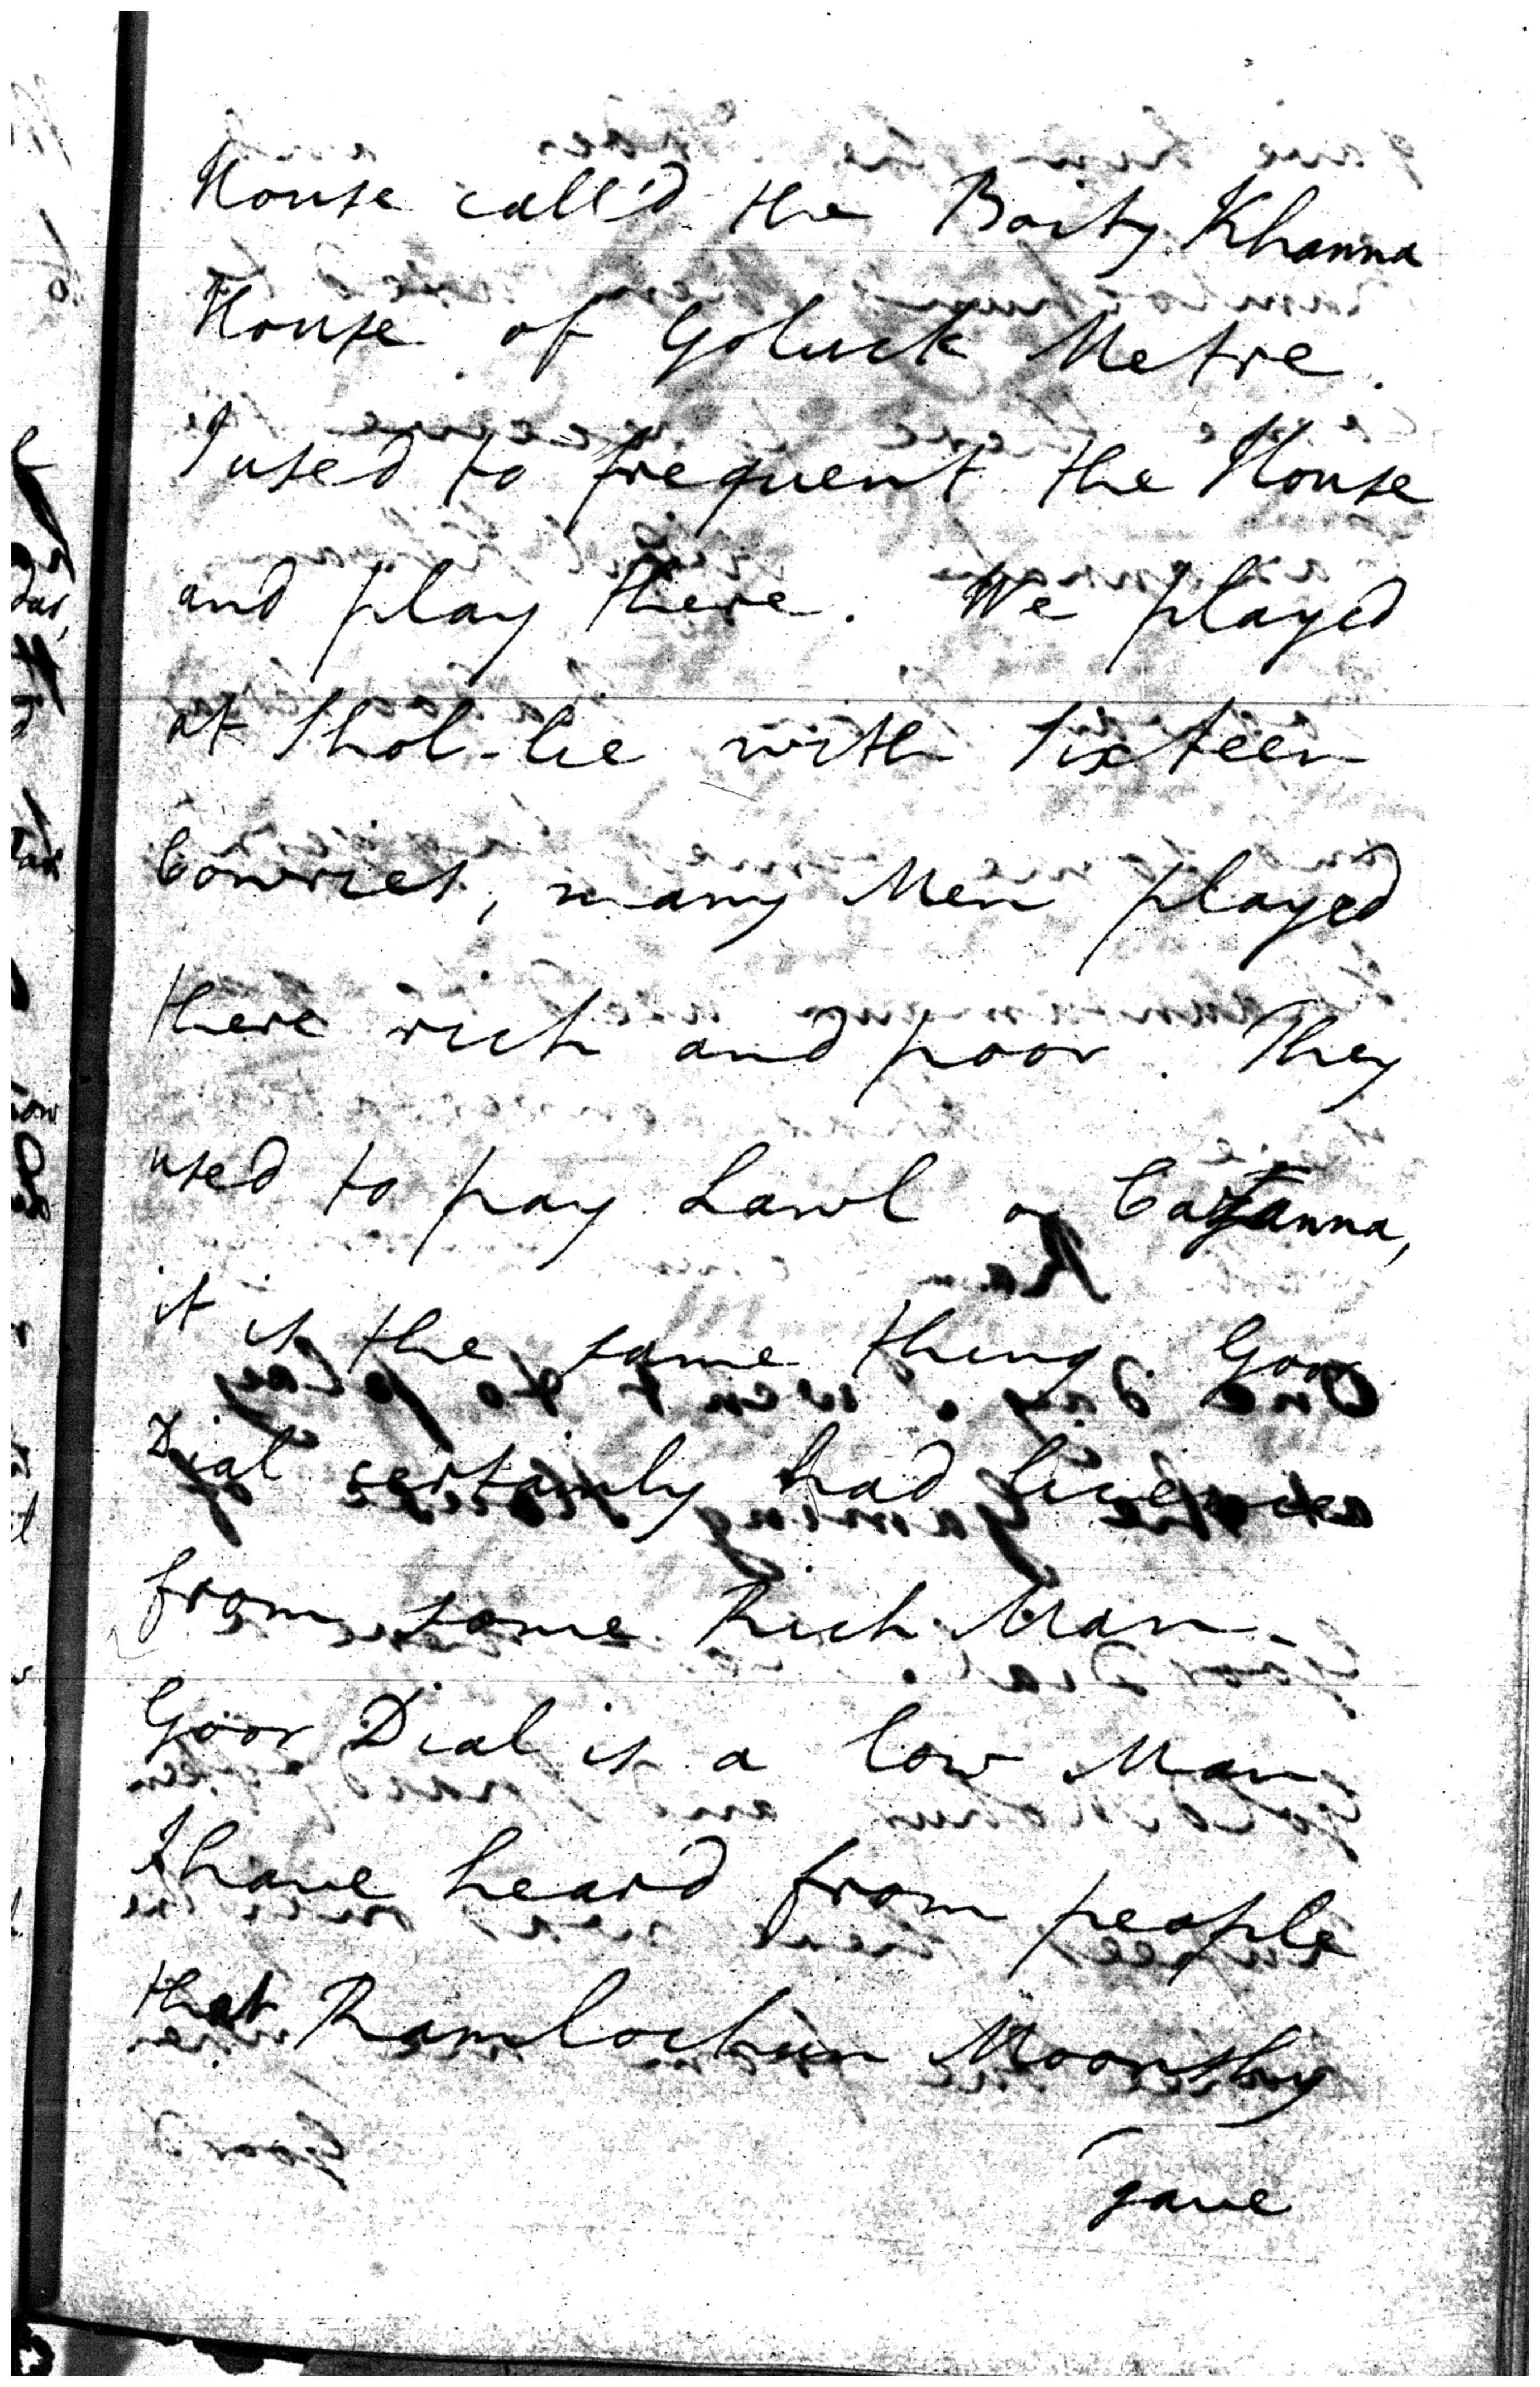 House call'd the Boity Khanna
House of Goluck Metre.
I used to frequent the House
and play there. We played
at Shol-lie with Sixteen
Cowries, many Men played
there rich and poor. They
used to pay Lawl or
it is the same thing. Goor
Dial certainly had licence
from some Rich Man -
Goor Dial is a low Man
I have heard from people
that Ramlochun Moonshy
gave